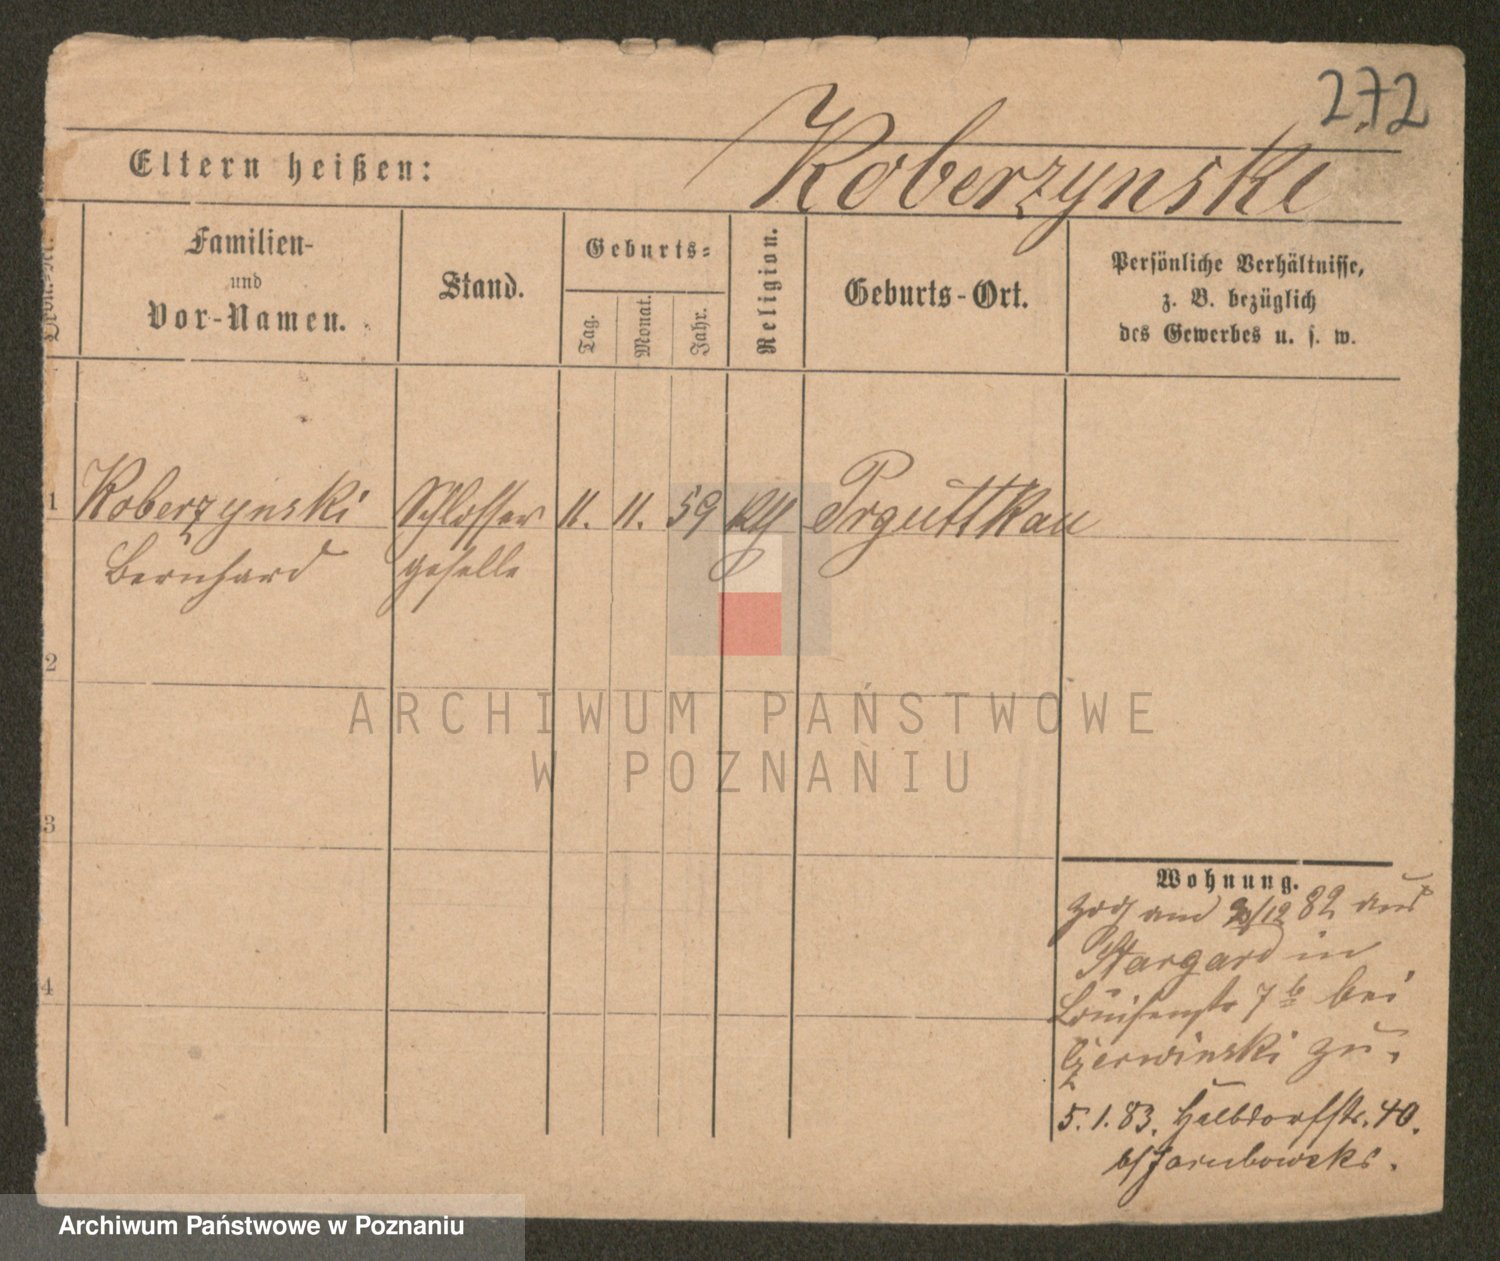 272
Eltern heißen:
Koberzynski
Ordn.-Nr.
Familien-
und
Vor-Namen.
Stand.
Geburts-
Tag.
Monat.
Jahr.
Religion.
Geburts-Ort.
Persönliche Verhältnisse,
z. B. bezüglich
des Gewerbes u. s. w.
1
Koberzynski Schlosser 11. 11. 59 kth
Bernhard geselle
2
3
4
Wohnung.
zog am /12 82 aus
Stargard in
Louisenstr 7 b bei
Czerwinski zu.
5.1.83. Halbdorfstr. 40.
ARCHIWUM PAŃSTWOWE
W POZNANIU
Archiwum Państwowe w Poznaniu